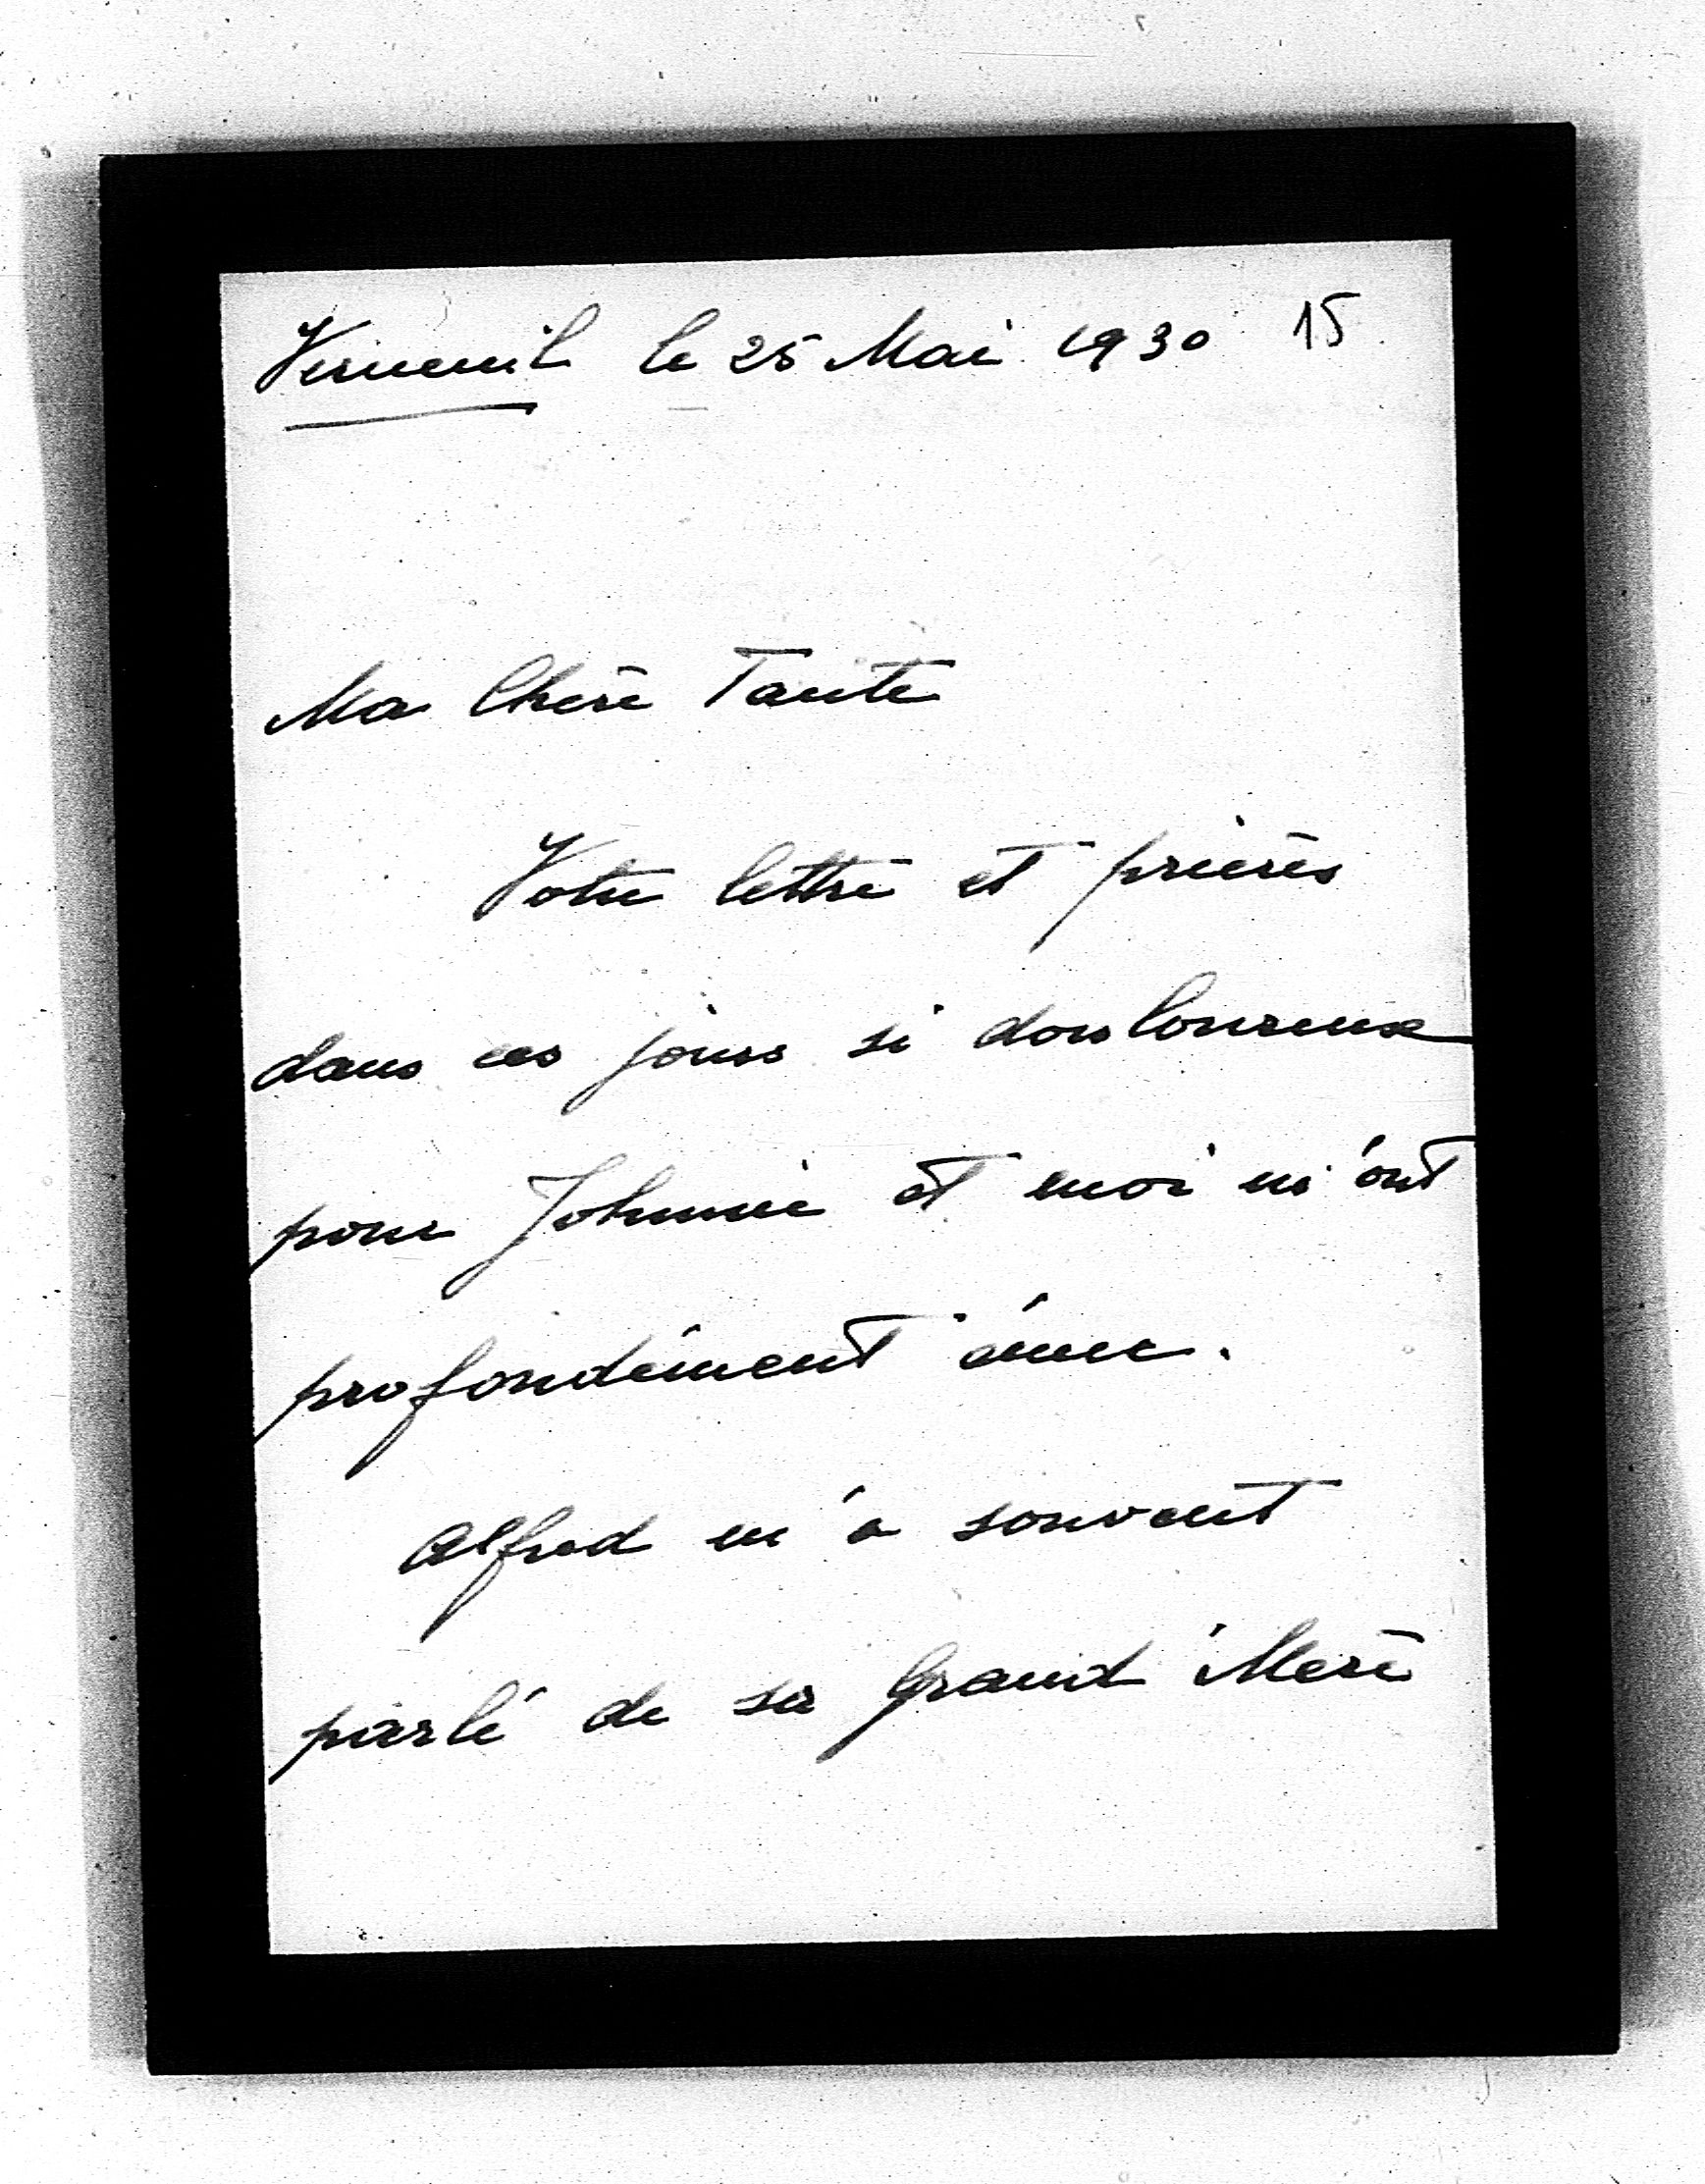 Verneuil le 25 Mai 1930 15
Ma Chère Tante
Votre lettre et prières
dans ces jours si douloureux
pour Johnnie et moi m'ont
profondément émue.
Alfred m'a souvent
parlé de sa Grand'Mère